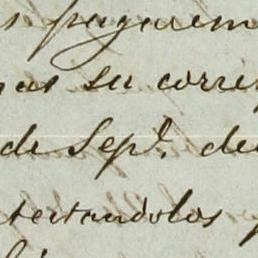 s pagarem
as su corre
de Sepe. de
tertandolos